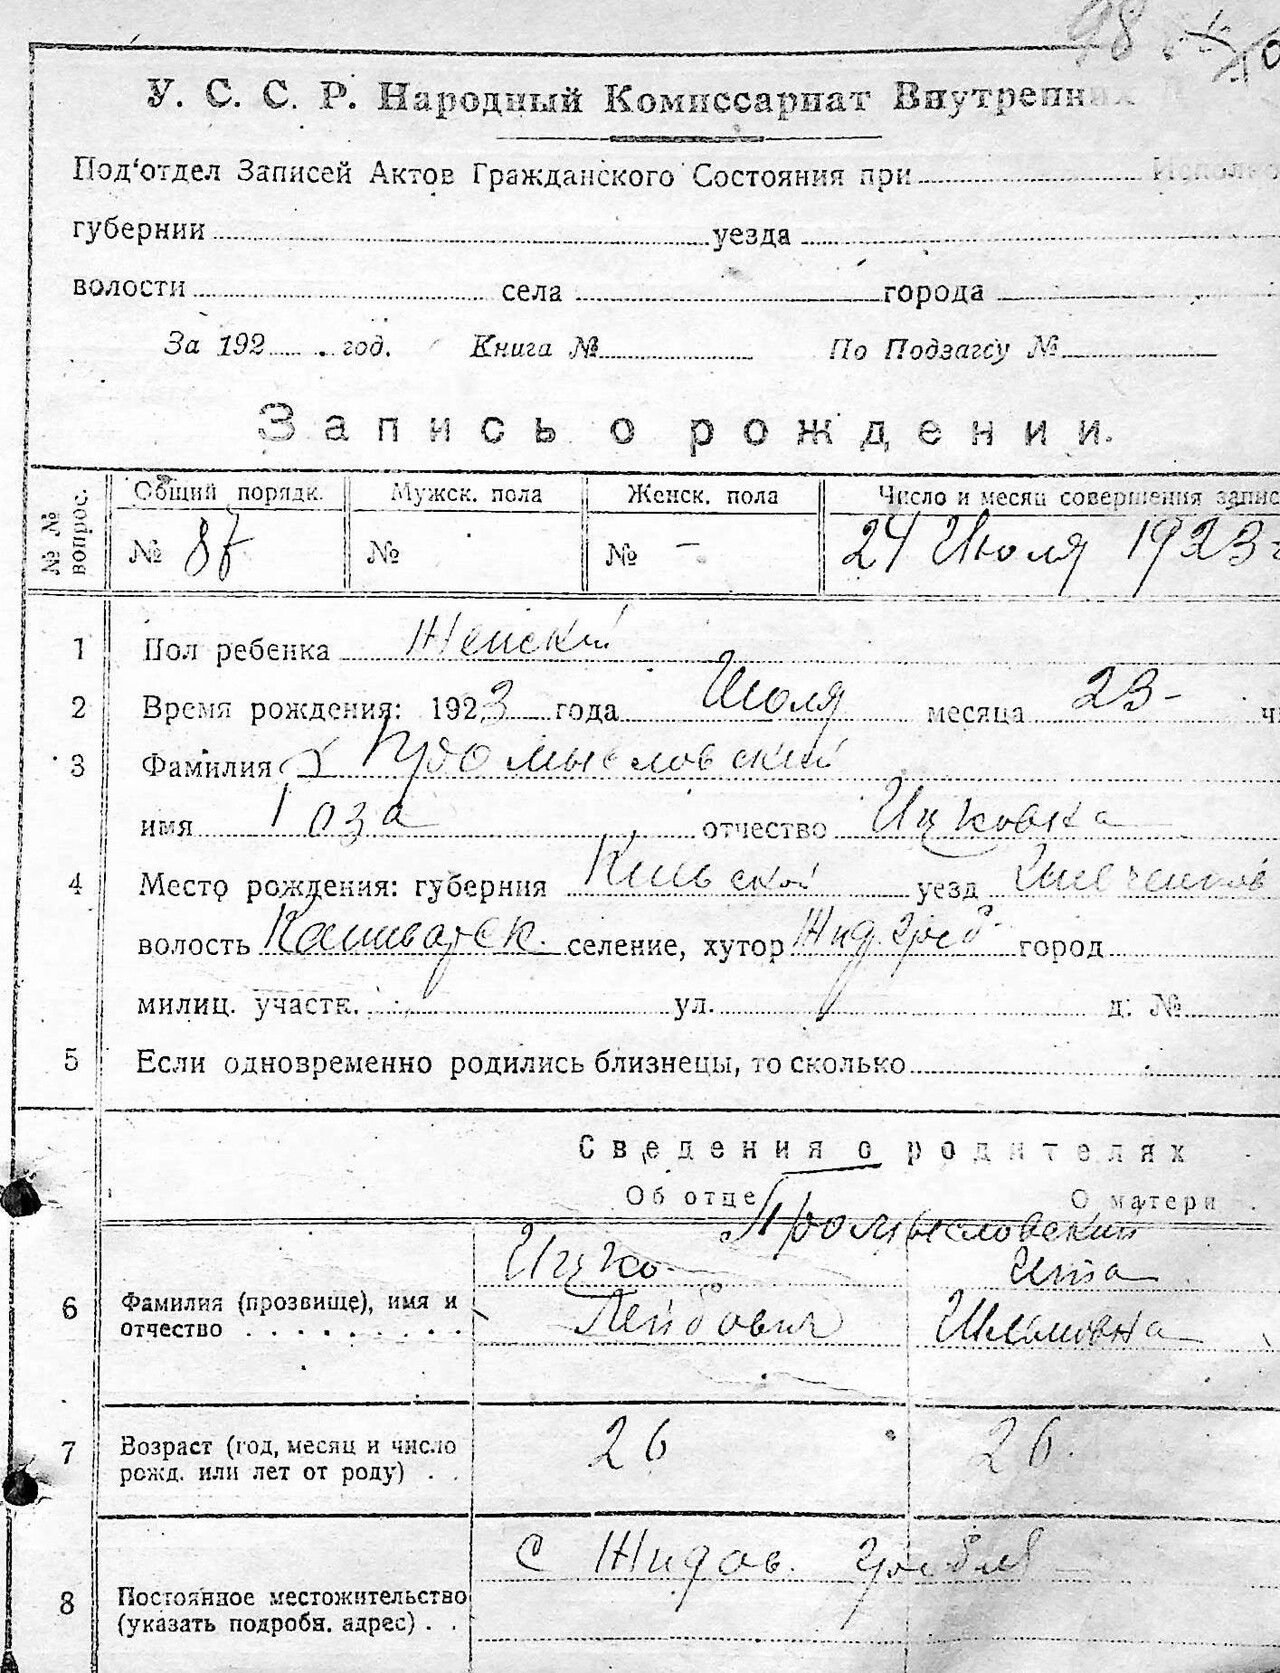 98
У. С. С. Р. Народный Комиссариат Внутренних
Под‘отдел Записей Актов Гражданского Состояния при Исполко
губернии уезда
волости села города
За 192 . год. Книга № По Подзагсу №
Запись о рождении.
№ № вопрос. Общий порядк. Мужск. пола Женск. пола Число и месяц совершения запис
№ 87 № № – 24 Июля 1923 г
1 Пол ребенка Женский
2 Время рождения: 1923 года Июля месяца 23 - чи
3 Фамилия Промысловский
имя Роза отчество Ицковна
4 Место рождения: губерния Киевской уезд Шевченков
волость селение, хутор Жид. греб. город
милиц. участк. ул. д. №
5 Если одновременно родились близнецы, то сколько
Сведения о родителях
Об отце О матери
Промысловский
Ицко Ита
6 Фамилия (прозвище), имя и отчество Лейбович Шлёмовна
7 Возраст (год, месяц и число рожд. или лет от роду) . . 26 26.
8 Постоянное местожительство (указать подробн. адрес) . . с Жидов. гребля